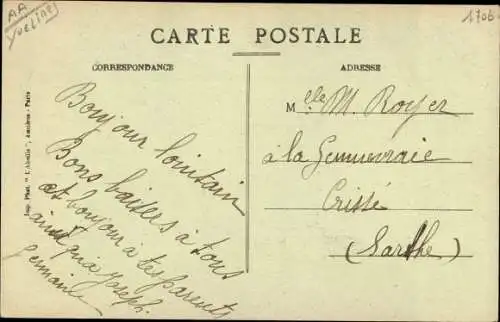 AA
Yvelines
1706
CARTE POSTALE
CORRESPONDANCE
ADRESSE
Bonjour lointain
Bons baisers à tous
et bonjour à tes parents
ainsi qu'à Joseph.
Germaine
Mlle M. Royer
à la
Crissé
(Sarthe)
Imp. Phot. "L'Abeille", Asnières - Paris